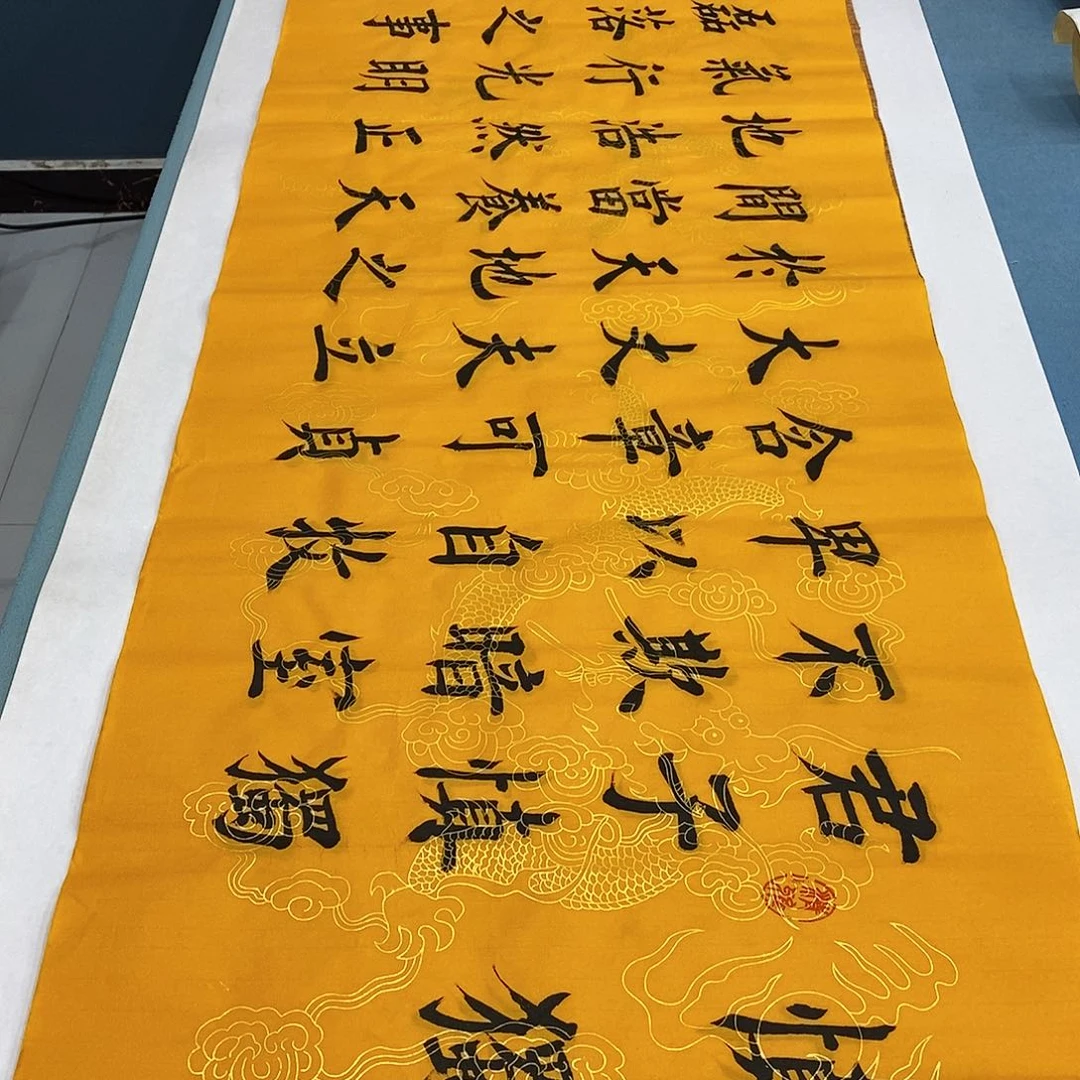 慎獨
君子慎獨
不欺暗室
卑以自牧
含章可貞
大丈夫立
於天地之
間當養天
地浩然正
氣行光明
磊落之事